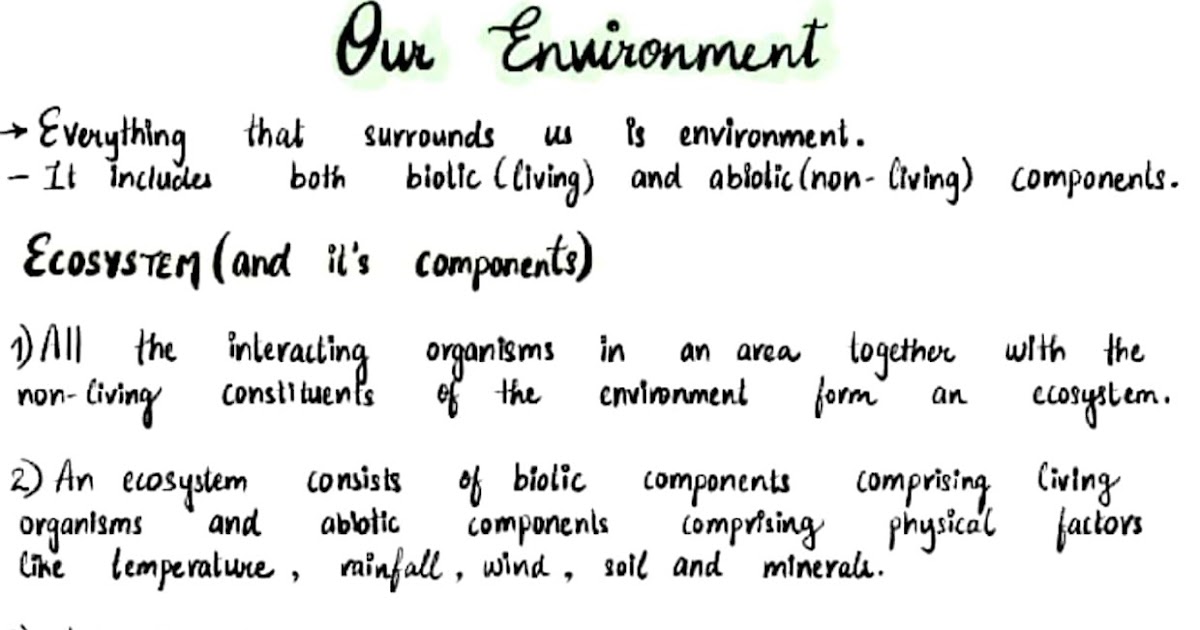 Our Environment
→ Everything that surrounds us is environment.
- It includes both biotic (living) and abiotic (non-living) components.
ECOSYSTEM (and it's components)
1) All the interacting organisms in an area together with the
non-living constituents of the environment form an ecosystem.
2) An ecosystem consists of biotic components comprising living
organisms and abiotic components comprising physical factors
like temperature, rainfall, wind, soil and minerals.